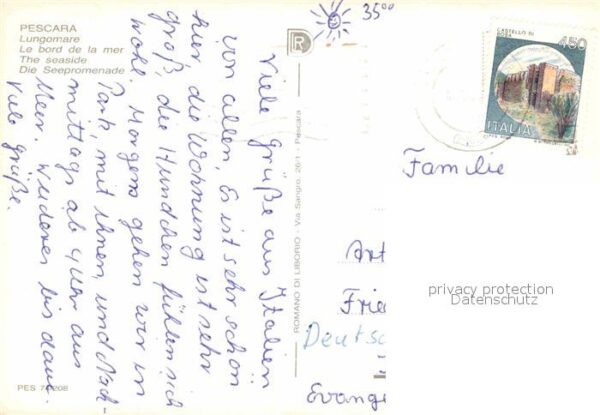 PESCARA
Lungomare
Le bord de la mer
The seaside
Die Seepromenade
35⁰⁰
R
CASTELLO DI
450
ITALIA
Viele Grüße aus Italien
von allen, Es ist sehr schön
hier, die Wohnung ist sehr
groß, die Hundchen fühlen sich
wohl. Morgens gehen wir in
Park, mit ihnen, und Nach-
mittags ab 4 Uhr ans
Meer. Weiteres bis dann.
Viele Grüße.
ROMANO DI LIBORIO - Via Sangro, 26/1 - Pescara
PES 74/208
Familie
Art
Frie
Deutsc
Evange
privacy protection
Datenschutz